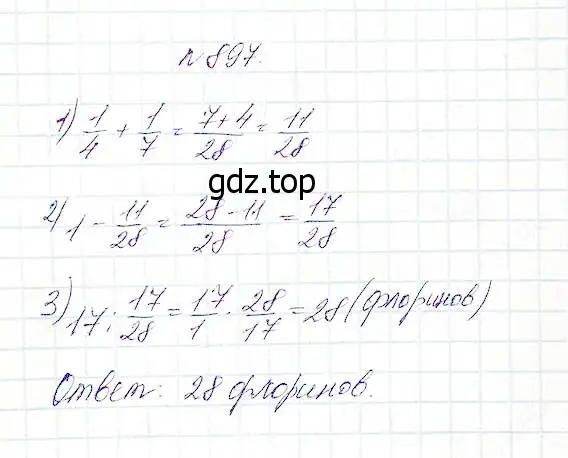 № 897.
1) 1/4 + 1/7 = 7+4/28 = 11/28
gdz.top
2) 1 - 11/28 = 28-11/28 = 17/28
3) 17 : 17/28 = 17/1 · 28/17 = 28 (флоринов)
Ответ: 28 флоринов.